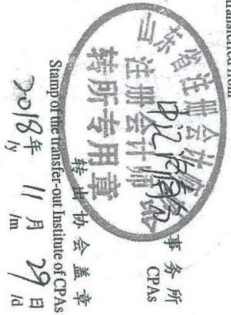 transferred from
事务所
CPAs
山东省注册会计师协会
注册会计师
转所专用章
转出协会盖章
Stamp of the transfer-out Institute of CPAs
2018年 11月 29日
/y /m /d